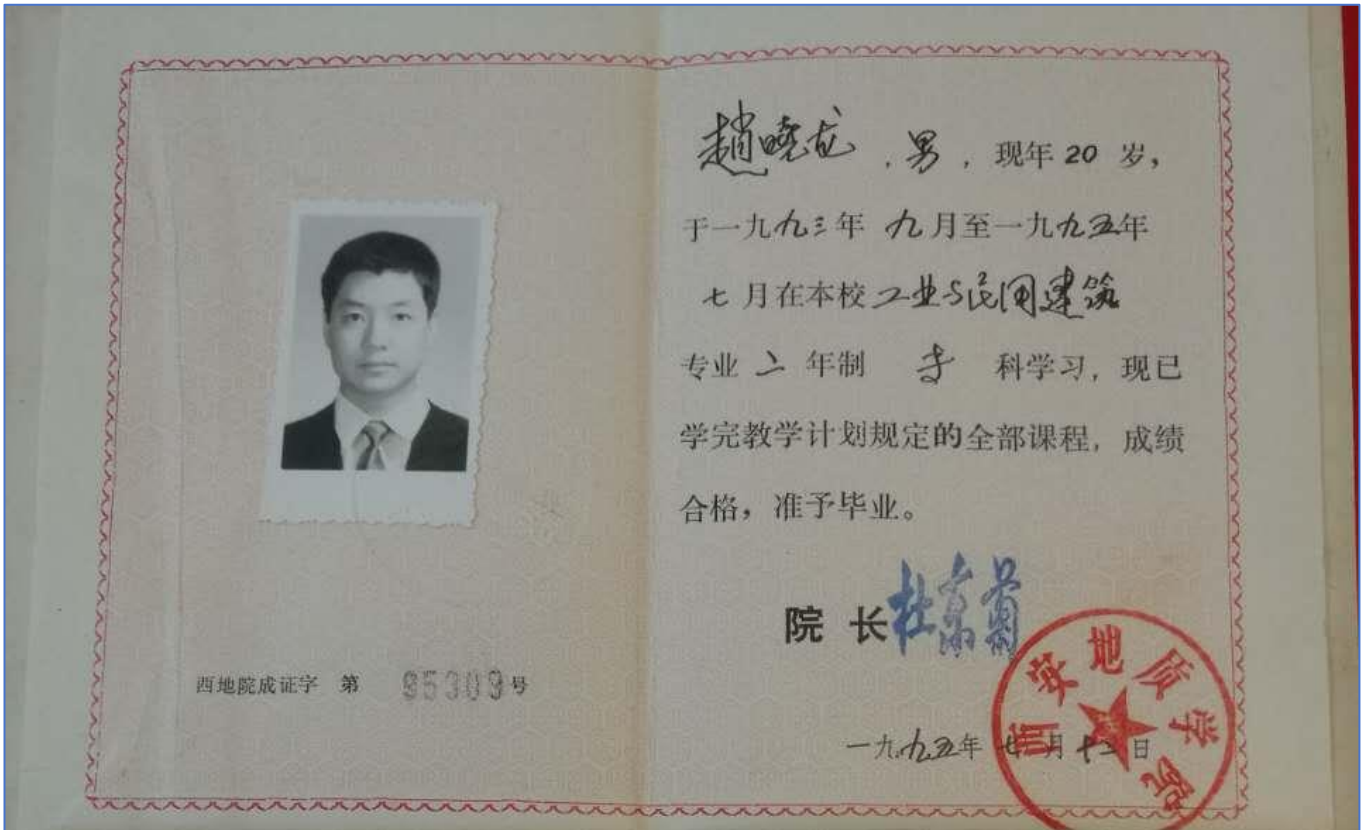 西地院成证字 第 95309号
趙曉龙，男，现年 20 岁，
于一九九三年 九月至一九九五年
七月在本校工业与民用建筑
专业 二 年制 专 科学习，现已
学完教学计划规定的全部课程，成绩
合格，准予毕业。
院 长
一九九五年 七月十二日
西安地质学院